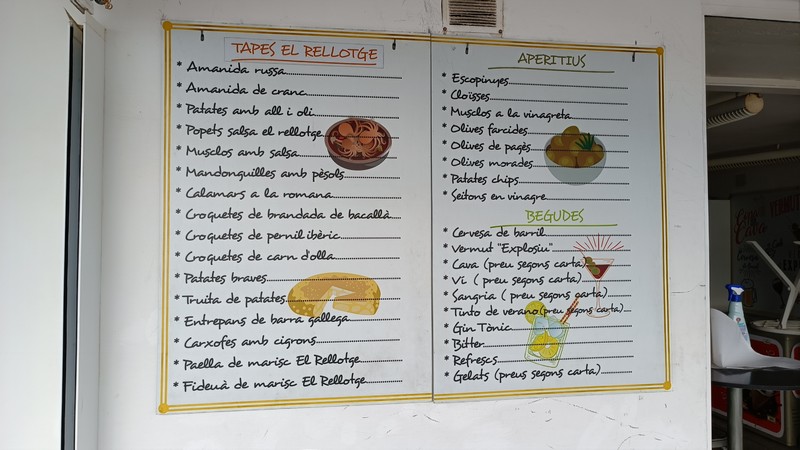 TAPES EL RELLOTGE
* Amanida russa
* Amanida de cranc
* Patates amb all i oli
* Popets salsa el rellotge
* Musclos amb salsa
* Mandonguilles amb pèsols
* Calamars a la romana
* Croquetes de brandada de bacallà
* Croquetes de pernil ibèric
* Croquetes de carn d'olla
* Patates braves
* Truita de patates
* Entrepans de barra gallega
* Carxofes amb cigrons
* Paella de marisc El Rellotge
* Fideuà de marisc El Rellotge
APERITIUS
* Escopinyes
* Cloïsses
* Musclos a la vinagreta
* Olives farcides
* Olives de pagès
* Olives morades
* Patates chips
* Seitons en vinagre
BEGUDES
* Cervesa de barril
* Vermut "Explosiu"
* Cava (preu segons carta)
* Vi ( preu segons carta)
* Sangria ( preu segons carta)
* Tinto de verano (preu segons carta)
* Gin Tònic
* Bitter
* Refrescs
* Gelats (preus segons carta)